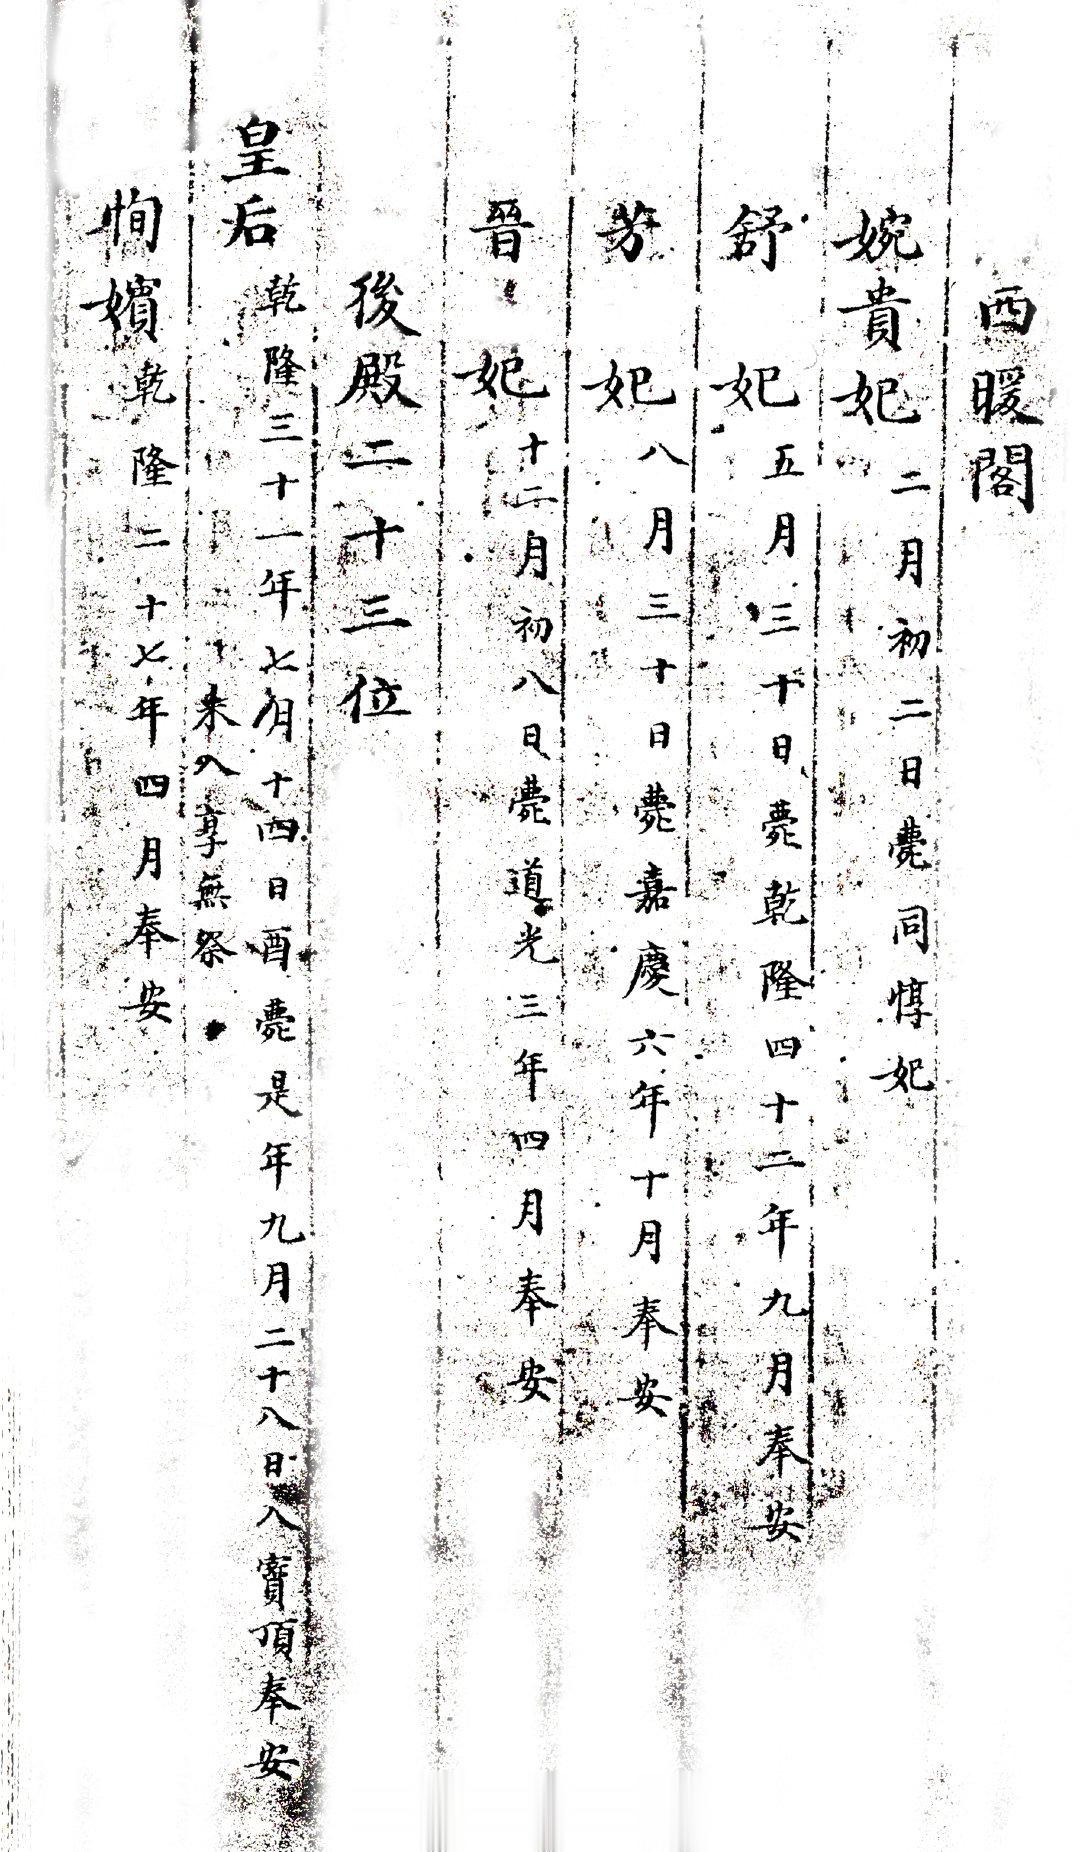 西暖閣
婉貴妃二月初二日薨同惇妃
舒 妃五月三十日薨乾隆四十二年九月奉安
芳 妃八月三十日薨嘉慶六年十月奉安
晉 妃十二月初八日薨道光三年四月奉安
後殿二十三位
皇后乾隆三十一年七月十四日酉薨是年九月二十八日入寶頂奉安
未入享無祭
恂嬪乾隆二十七年四月奉安